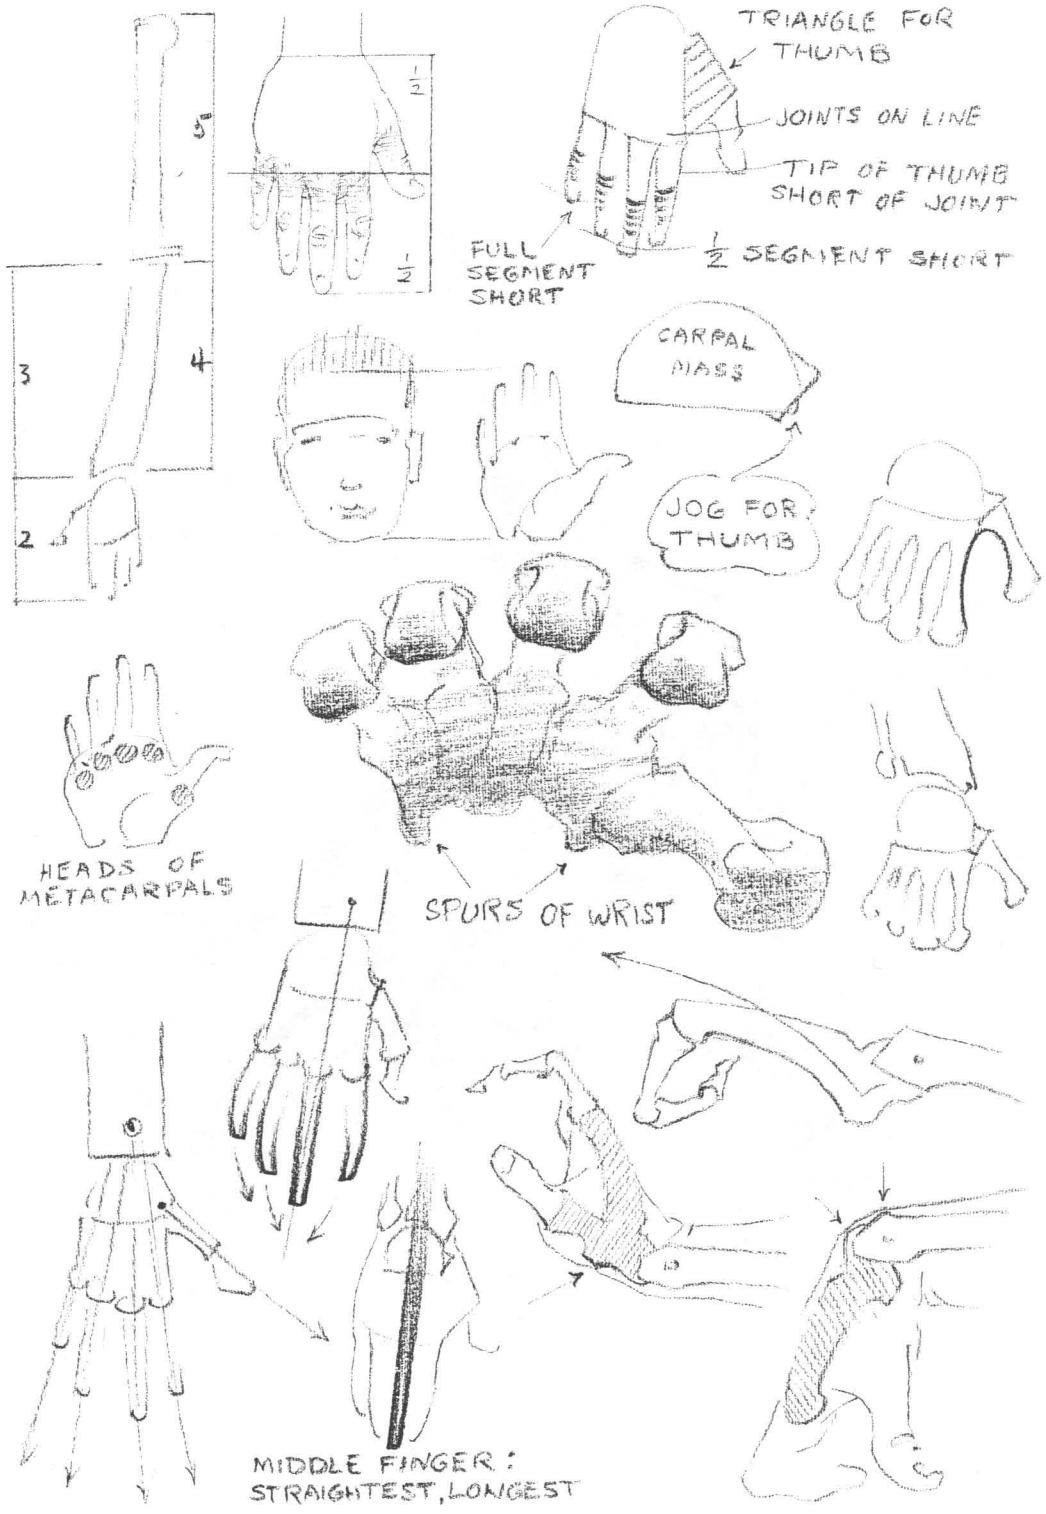 TRIANGLE FOR
THUMB
JOINTS ON LINE
TIP OF THUMB
SHORT OF JOINT
1/2 SEGMENT SHORT
FULL
SEGMENT
SHORT
1/2
1/2
5
4
3
2
CARPAL
MASS
JOG FOR
THUMB
HEADS OF
METACARPALS
SPURS OF WRIST
MIDDLE FINGER:
STRAIGHTEST, LONGEST